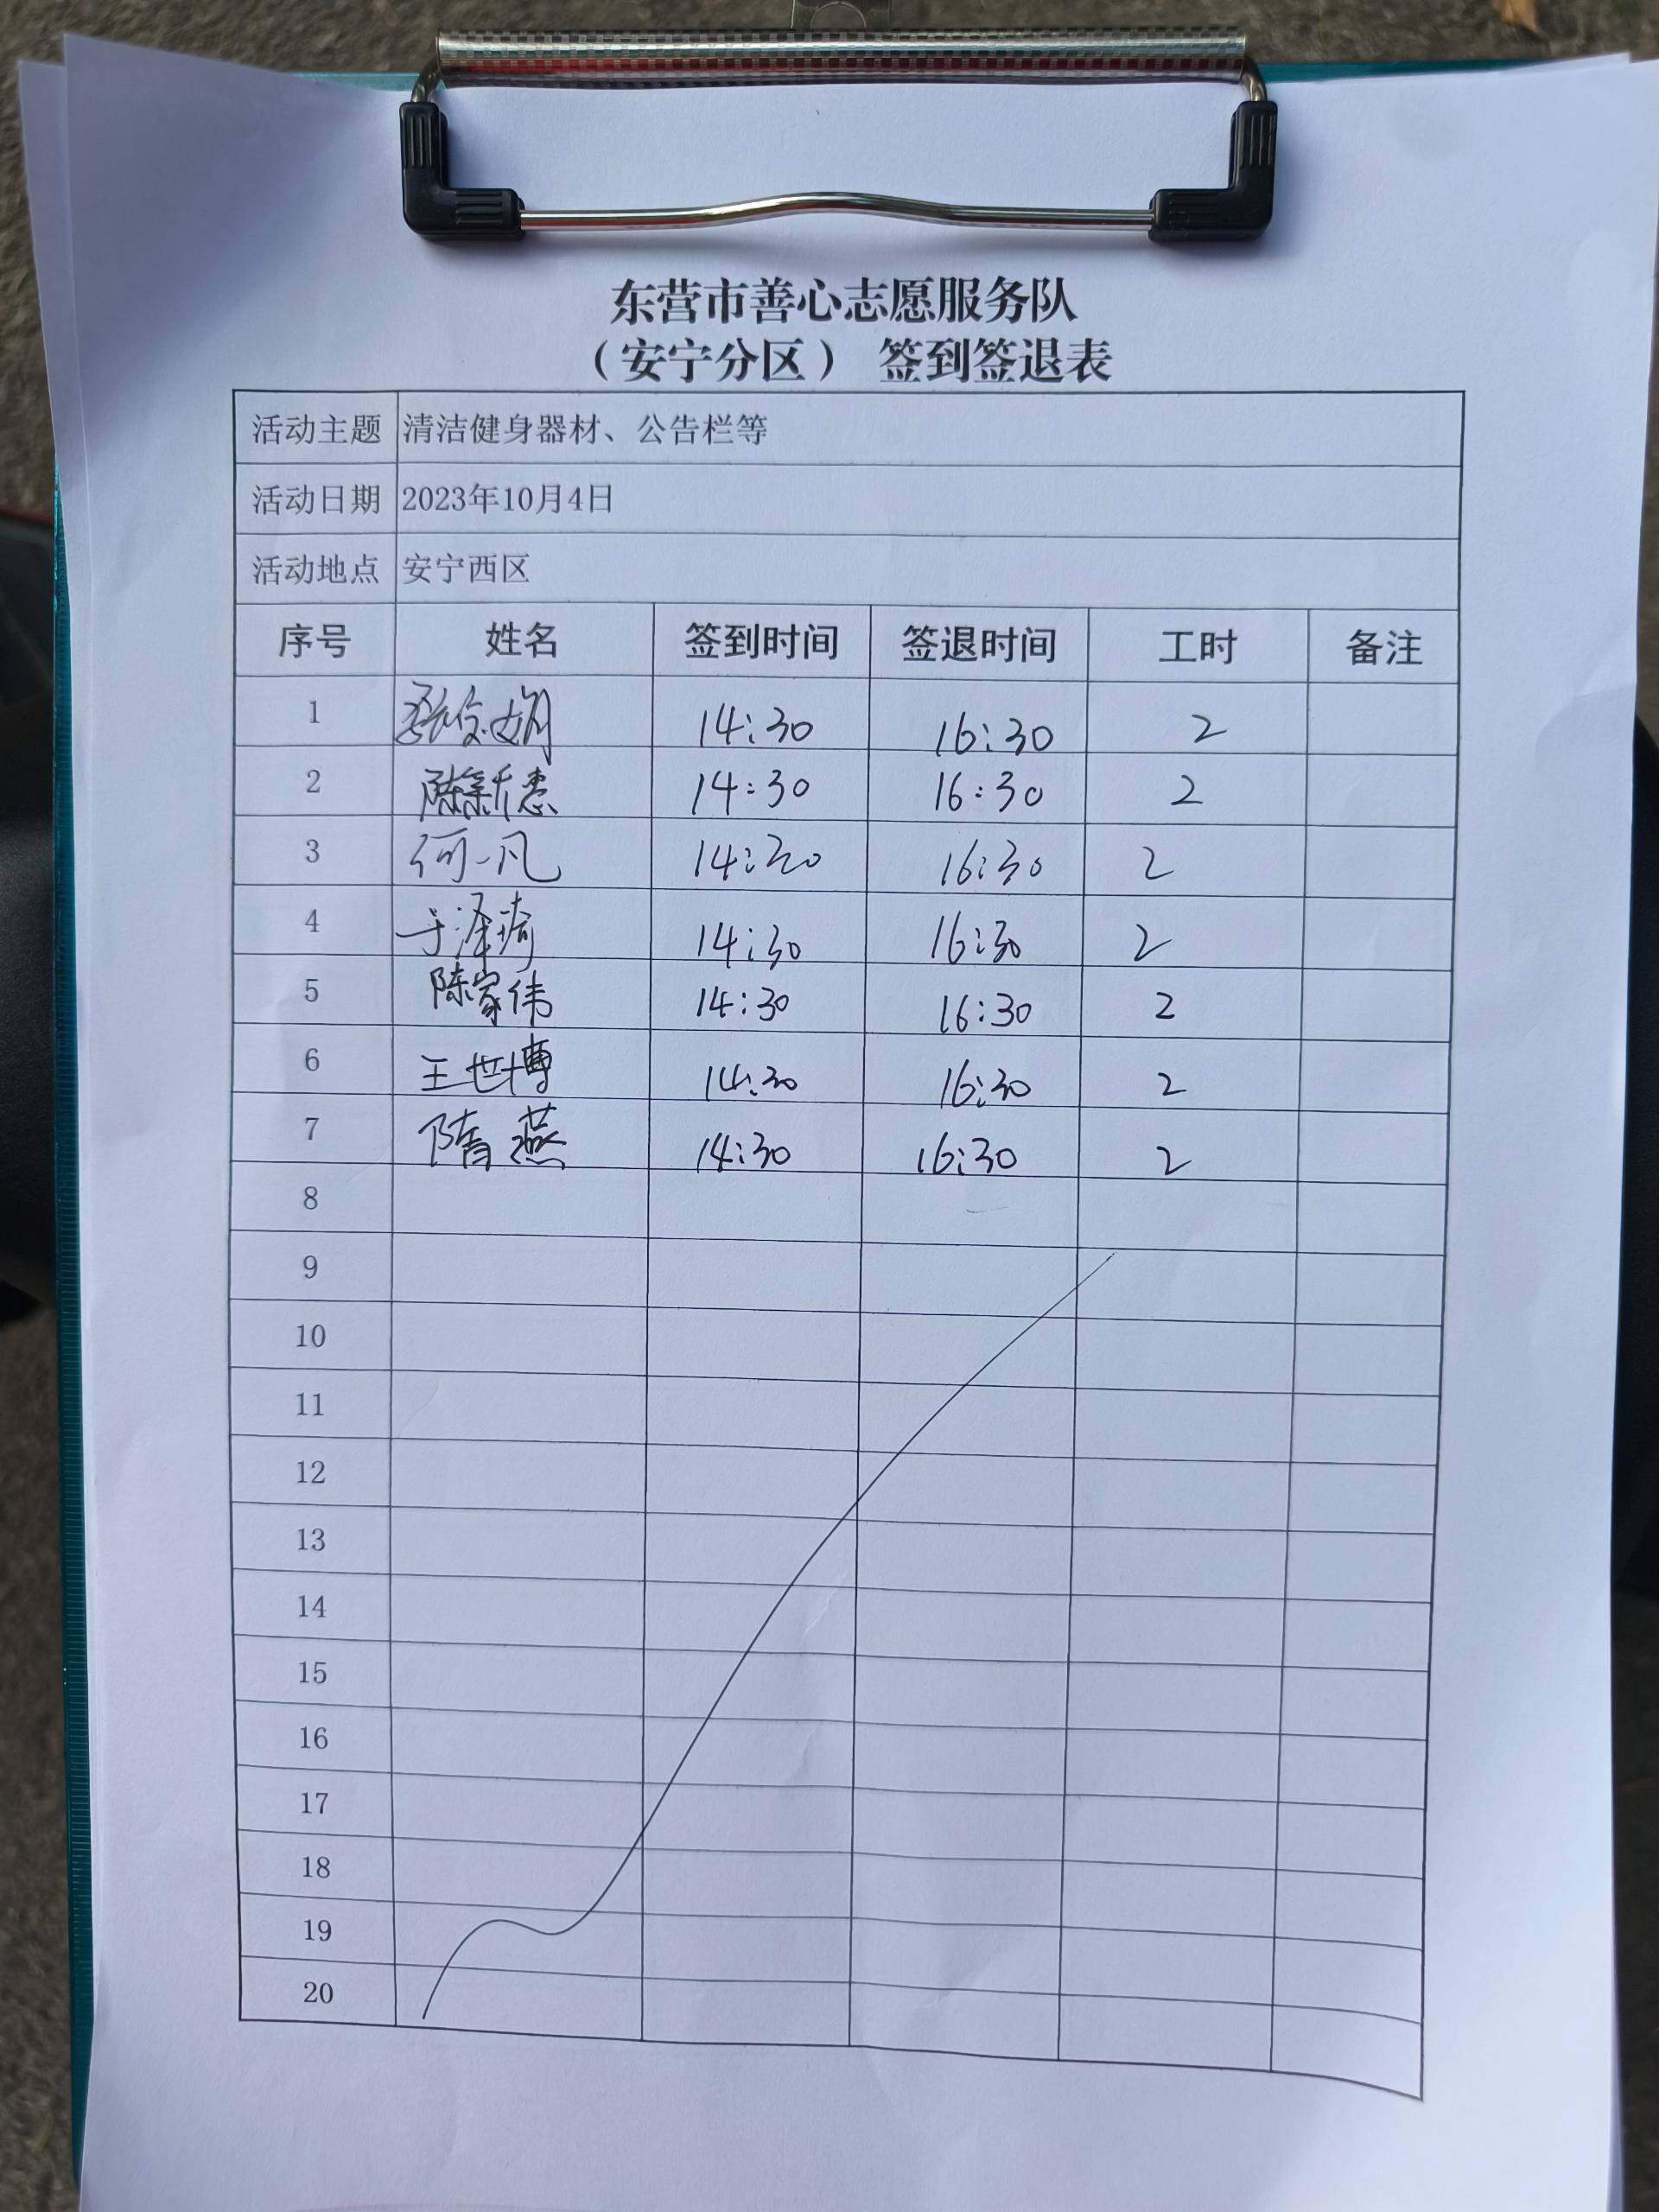 东营市善心志愿服务队
（安宁分区） 签到签退表
活动主题 清洁健身器材、公告栏等
活动日期 2023年10月4日
活动地点 安宁西区
序号 姓名 签到时间 签退时间 工时 备注
1 14:30 16:30 2
2 陈新忠 14:30 16:30 2
3 何一凡 14:30 16:30 2
4 于泽琦 14:30 16:30 2
5 陈家伟 14:30 16:30 2
6 王世博 14:30 16:30 2
7 隋燕 14:30 16:30 2
8
9
10
11
12
13
14
15
16
17
18
19
20